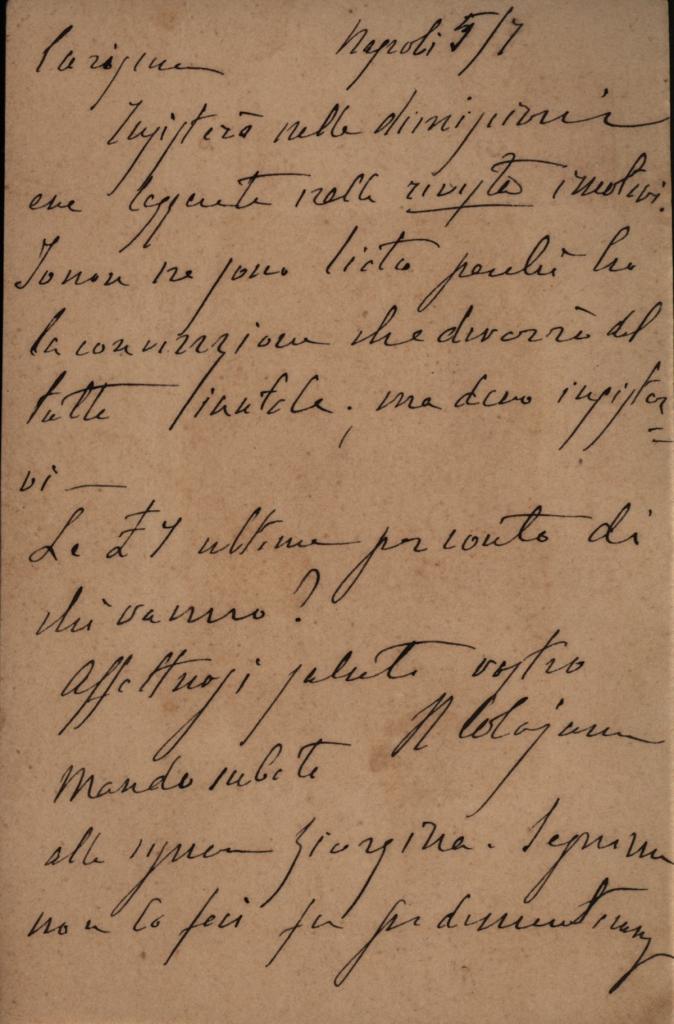 Carissima Napoli 5/7
Insisterò nelle dimissioni
e ne leggerete nella rivista i motivi.
Io non ne sono lieto perché ho
la convinzione che diverrà del
tutto inutile; ma devo insister
vi —
Le £ 7 ultime per conto di
chi vanno?
Affettuosi saluti vostro
N Colajanni
Mando subito
alla signora Giorgina. Se prima
non lo feci fu per dimenticanza